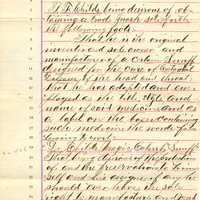 T. F. Childs being desirous of ob-
taining a trade mark sets forth
the following facts.
That he is the original
inventor and sole owner and
manufacturer of a certain Snuff
designed for the cure of Catarrhal
diseases of the head and throat,
that he has adopted and em-
ployed as the title, style and
name of said medicine and as
a label on the boxes containing
said medicine the words fol-
lowing to wit:
Dr. Childs' Magic Catarrh Snuff
That being desirous of the protection
of and the preservation to him
self and his assigns of any he
should ever have the sole
right to manufacture and vend